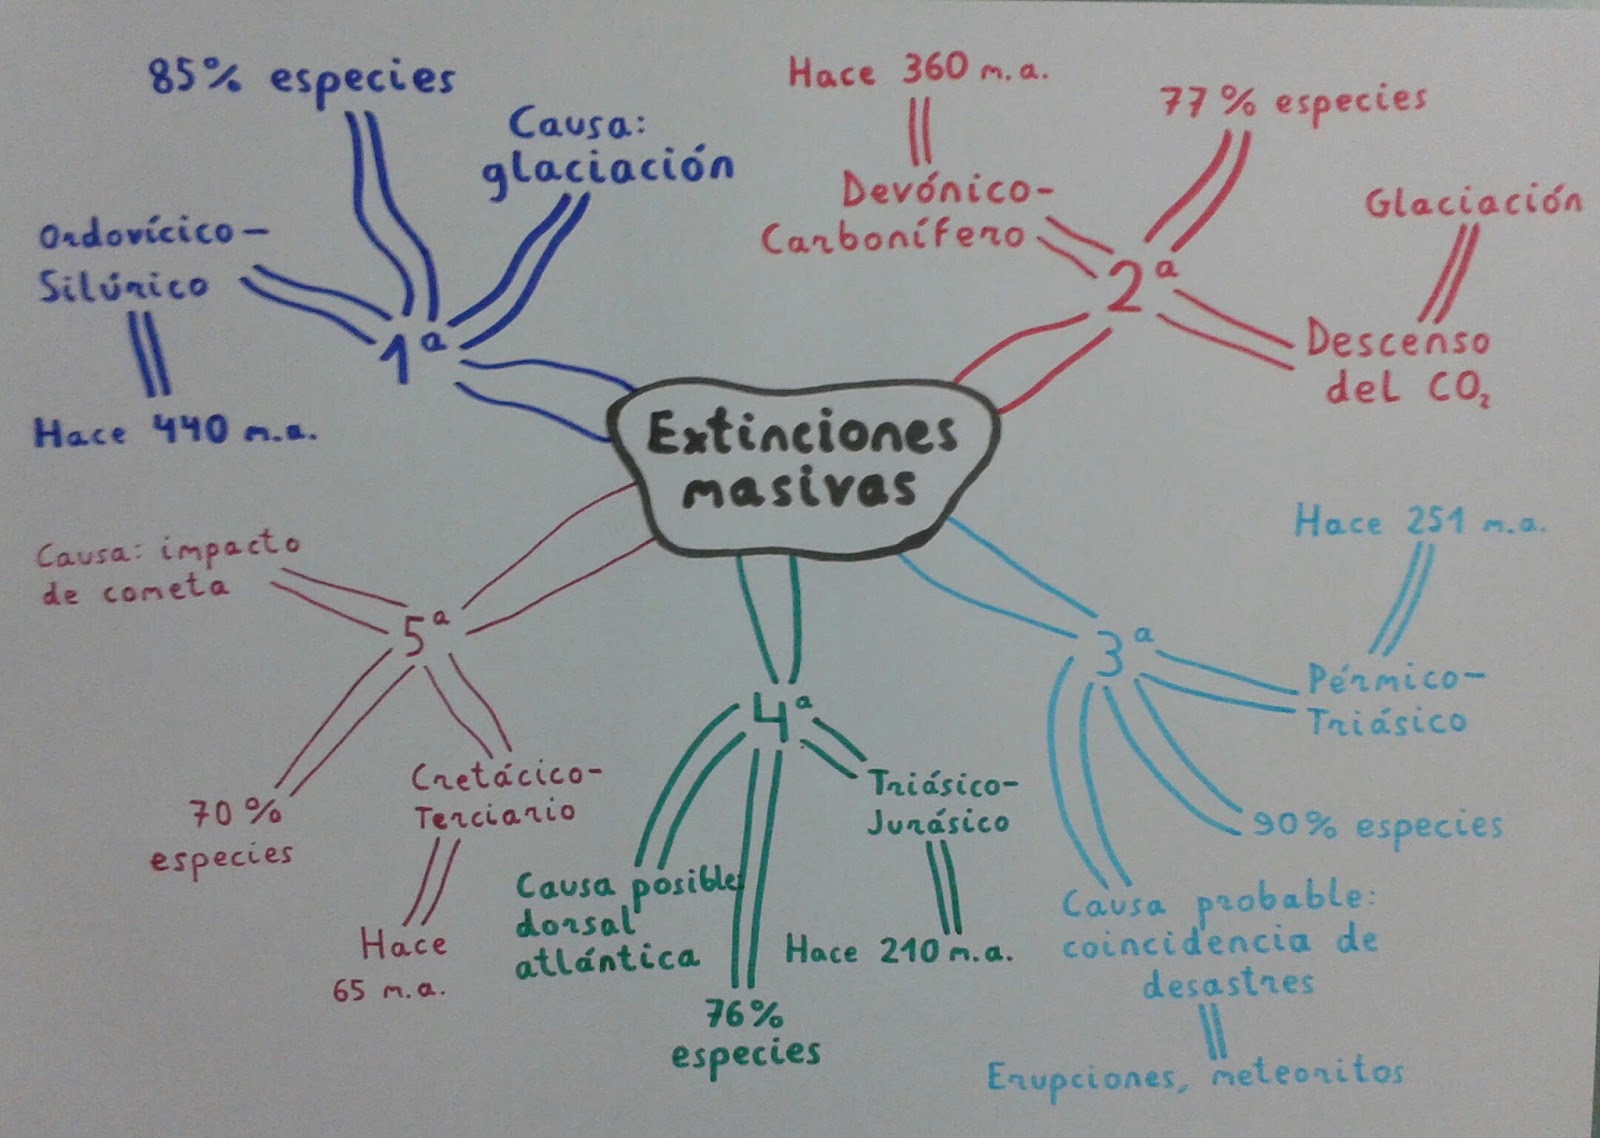 Extinciones
masivas
1ª
Ordovícico-
Silúrico
Hace 440 m.a.
85% especies
Causa:
glaciación
2ª
Hace 360 m.a.
Devónico-
Carbonífero
77% especies
Glaciación
Descenso
del CO₂
3ª
Hace 251 m.a.
Pérmico-
Triásico
90% especies
Causa probable:
coincidencia de
desastres
Erupciones, meteoritos
4ª
Triásico-
Jurásico
Hace 210 m.a.
76%
especies
Causa posible
dorsal
atlántica
5ª
Cretácico-
Terciario
Hace
65 m.a.
70%
especies
Causa: impacto
de cometa